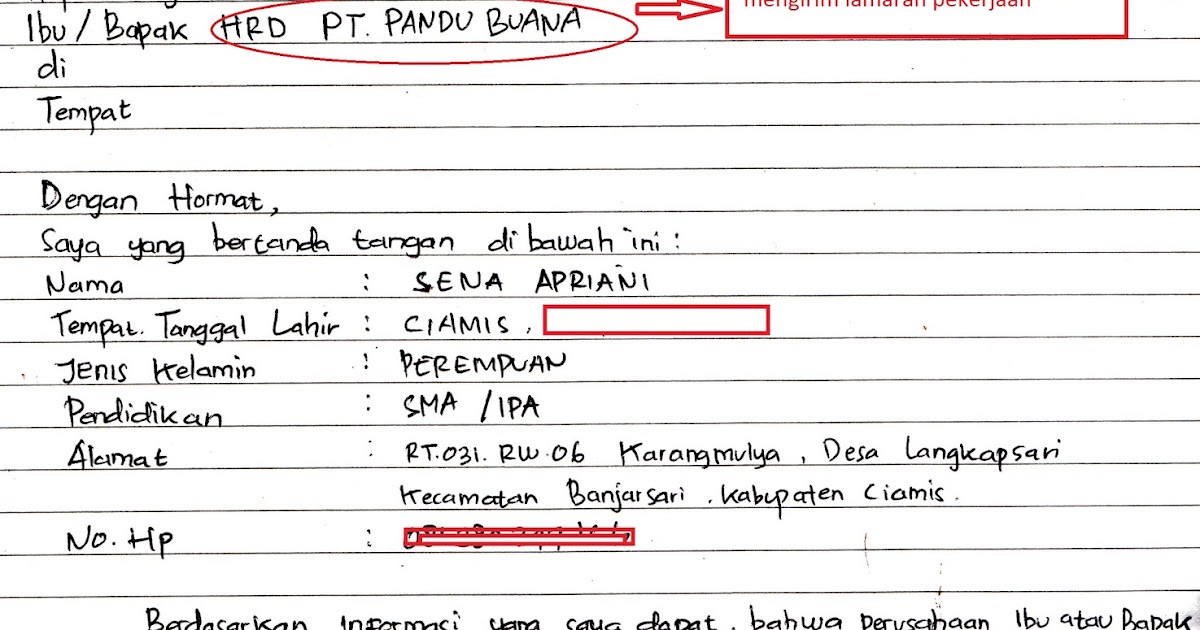 mengirim lamaran pekerjaan
Ibu / Bapak HRD PT. PANDU BUANA
di
Tempat
Dengan Hormat,
Saya yang bertanda tangan di bawah ini :
Nama : SENA APRIANI
Tempat. Tanggal Lahir : CIAMIS ,
Jenis Kelamin : PEREMPUAN
Pendidikan : SMA / IPA
Alamat : RT.031. RW.06 Karangmulya , Desa Langkapsari
Kecamatan Banjarsari . Kabupaten Ciamis .
No. Hp :
Berdasarkan Informasi yang saya dapat , bahwa perusahaan Ibu atau Bapak